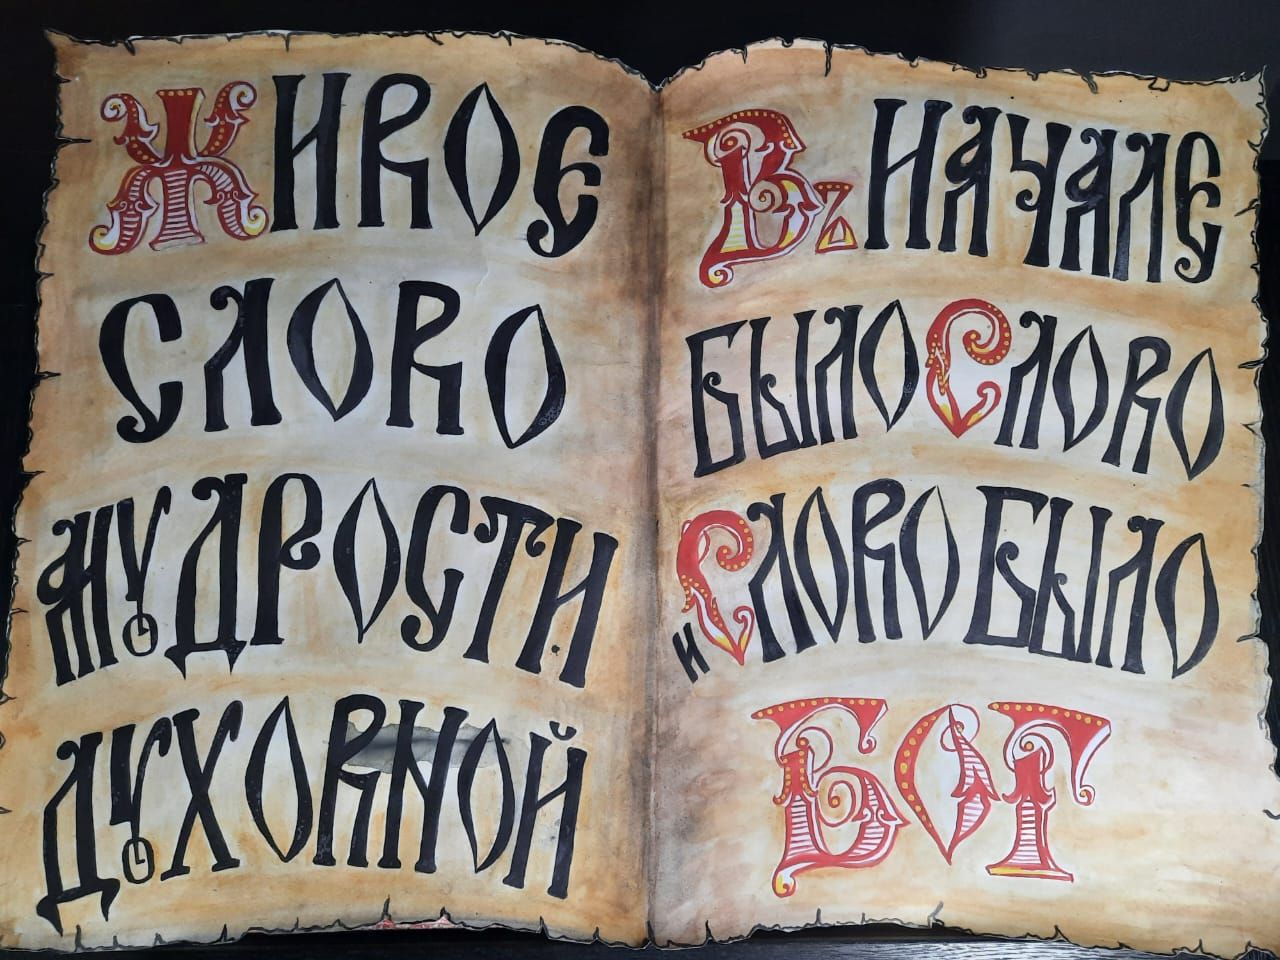 Живое
слово
мудрости
духовной
Въ начале
было Слово
и Слово было
БОГ